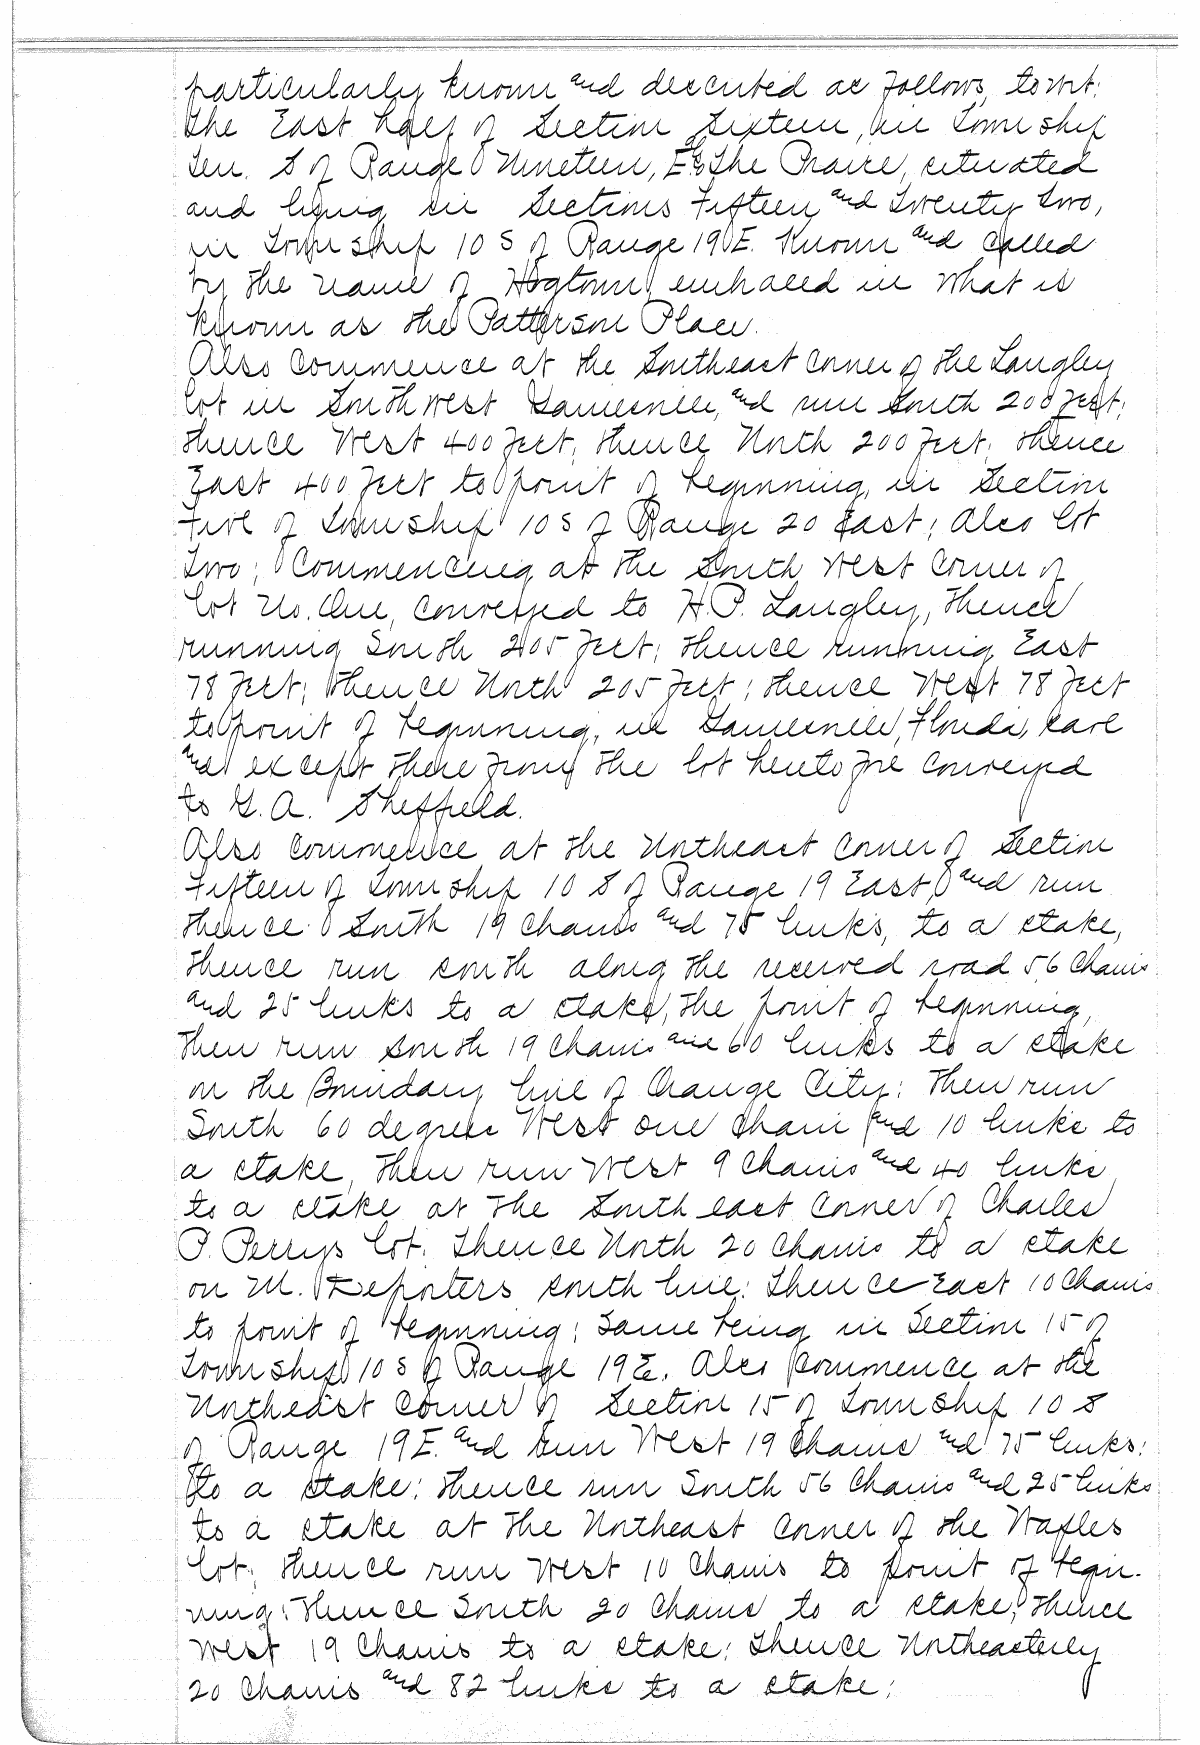 particularly known and described as follows, towit:
The East half of Section Sixteen, in Township
Ten. S of Range Nineteen, E. The Prairie, situated
and lying in Sections Fifteen and Twenty Two,
in Township 10 S of Range 19 E. Known and called
by the name of Hogtown, embraced in what is
known as the Patterson Place.
Also Commence at the Southeast Corner of the Langley
lot in Southwest Gainesville, and run South 200 feet;
thence West 400 feet; thence North 200 feet; thence
East 400 feet to point of beginning, in Section
Five of Township 10 S of Range 20 East; Also lot
Two; Commencing at the South West Corner of
lot No. One, conveyed to H. P. Langley, thence
running South 205 feet; thence running East
78 feet; thence North 205 feet; thence West 78 feet
to point of beginning, in Gainesville, Florida, save
and except there from the lot heretofore conveyed
to G. A. Sheffield.
Also Commence at the Northeast Corner of Section
Fifteen of Township 10 S of Range 19 East, and run
thence South 19 Chains and 75 links, to a stake,
thence run south along the reserved road 56 Chains
and 25 links to a stake, the point of beginning,
then run south 19 Chains and 60 links to a stake
on the Boundary line of Orange City; then run
South 60 degrees West one Chain and 10 links to
a stake, then run West 9 Chains and 40 links
to a stake at the South east Corner of Charles
P. Perrys lot; thence North 20 Chains to a stake
on M. Deporters south line; thence East 10 Chains
to point of beginning; same being in Section 15 of
Township 10 S of Range 19 E. Also commence at the
Northeast Corner of Section 15 of Township 10 S
of Range 19 E. and run West 19 Chains and 75 links;
to a stake; thence run South 56 Chains and 25 links
to a stake at the Northeast Corner of the Waples
lot; thence run West 10 Chains to point of begin-
ning; thence South 20 Chains to a stake; thence
West 19 Chains to a stake; thence Northeasterly
20 Chains and 82 links to a stake;